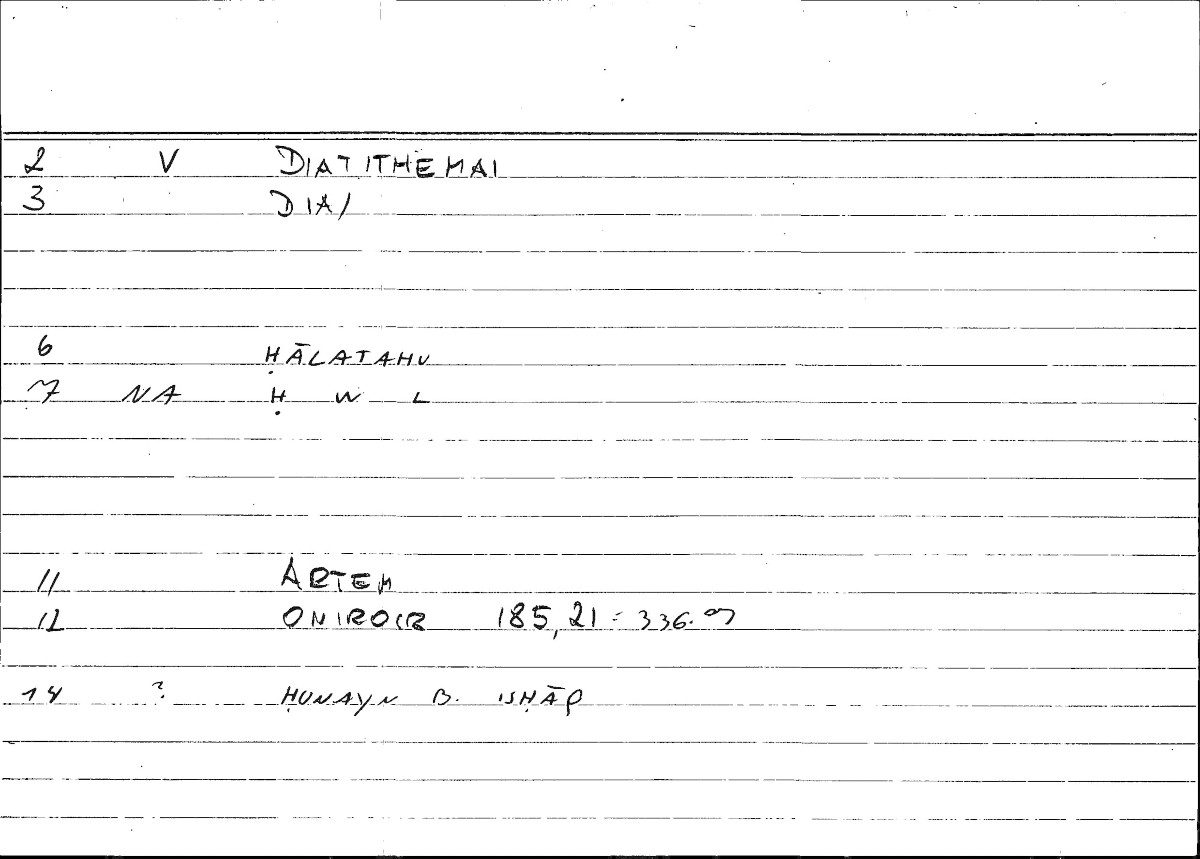 2 V DIATITHEMAI
3 DIA/
6 ḤĀLATAHU
7 NA Ḥ W L
11 ARTEM
12 ONIROCR 185,21 = 336.
14 ? ḤUNAYN B. ISḤĀQ